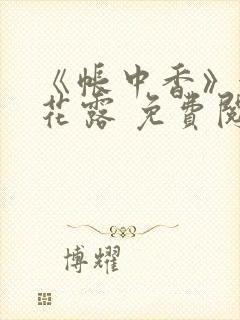 《帐中香》
花露 免費閱
博耀